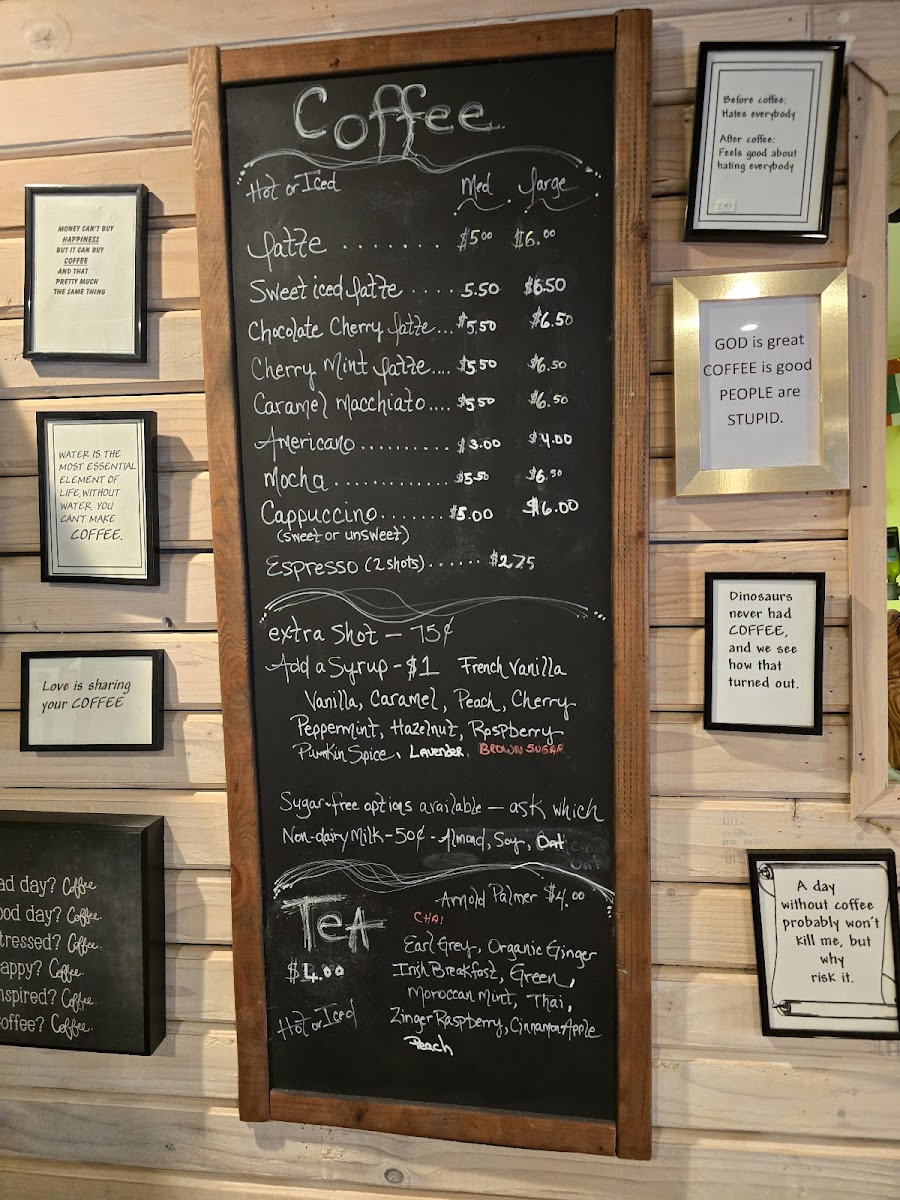 Coffee
Hot or Iced Med Large
Latte ........ $5.00 $6.00
Sweet iced Latte ..... 5.50 $6.50
Chocolate Cherry Latte... $5.50 $6.50
Cherry Mint Latte.... $5.50 $6.50
Caramel Macchiato.... $5.50 $6.50
Americano .......... $3.00 $4.00
Mocha ............. $5.50 $6.50
Cappuccino........ $5.00 $6.00
(sweet or unsweet)
Espresso (2 shots)...... $2.75
extra Shot - 75¢
Add a Syrup - $1 French Vanilla
Vanilla, Caramel, Peach, Cherry
Peppermint, Hazelnut, Raspberry
Pumkin Spice, Lavender, BROWN SUGAR
Sugar-free options available - ask which
Non-dairy Milk - 50¢ - Almond, Soy, Oat
Arnold Palmer $4.00
Tea
$4.00
Hot or Iced
CHAI
Earl Grey, Organic Ginger
Irish Breakfast, Green,
Moroccan Mint, Thai,
Zinger Raspberry, Cinnamon Apple
Peach
MONEY CAN'T BUY
HAPPINESS
BUT IT CAN BUY
COFFEE
AND THAT
PRETTY MUCH
THE SAME THING
WATER IS THE
MOST ESSENTIAL
ELEMENT OF
LIFE, WITHOUT
WATER YOU
CAN'T MAKE
COFFEE.
Love is sharing
your COFFEE
ad day? Coffee.
ood day? Coffee.
tressed? Coffee.
appy? Coffee.
nspired? Coffee.
offee? Coffee.
Before coffee:
Hates everybody
After coffee:
Feels good about
hating everybody
GOD is great
COFFEE is good
PEOPLE are
STUPID.
Dinosaurs
never had
COFFEE,
and we see
how that
turned out.
A day
without coffee
probably won't
kill me, but
why
risk it.